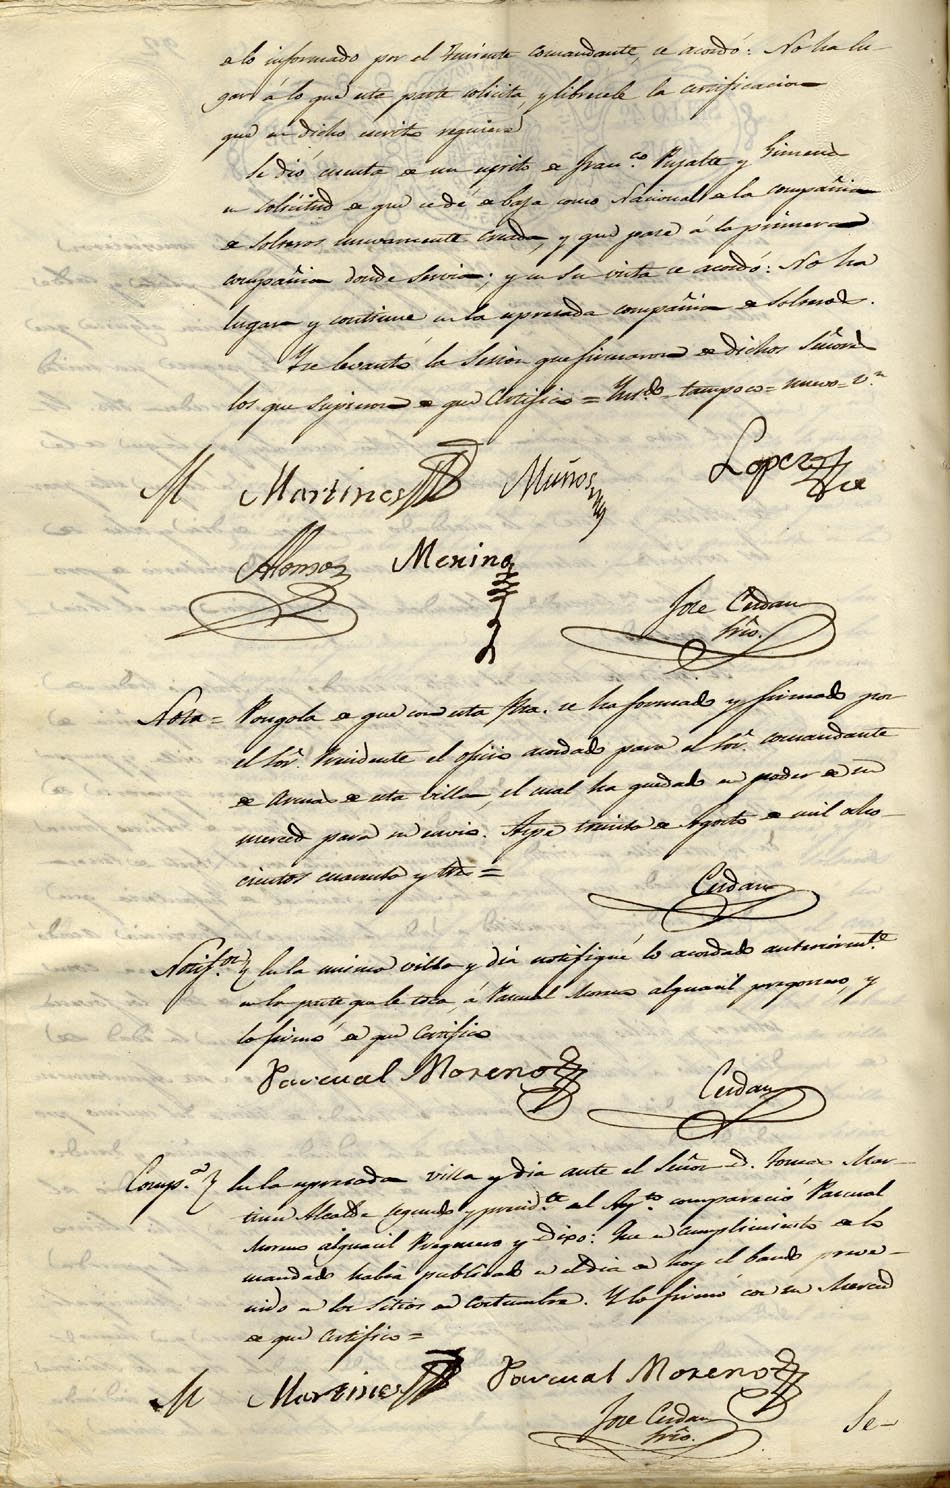 a lo informado por el Teniente comandante, se acordó: No ha lu-
gar á lo que esta parte solicita, y libresele la certificacion
que en dicho escrito requiere
Se dió cuenta de un escrito de Fran.co Pujalte y Gimena
en solicitud de que se dé de baja como Nacional de la compañia
de Solteros nuevamente creada, y que pase á la primera
compañia donde servia; y en su vista se acordó: No ha
lugar y continue en la espresada compañia de Solteros.
Y se levantó la Sesion que firmaron de dichos Señores
los que supieron de que Certifico = tampoco = nuevo = v.n
M Martines Muños Lopez
Alonso Merino
Jose Cerdan
Srio.
Nota = Pongola de que con esta fha. se ha formado y firmado por
el Sor. Presidente el oficio acordado para el Sor. comandante
de Armas de esta villa, el cual ha quedado en poder de su
merced para su envio. Aspe treinta de Agosto de mil ocho-
cientos cuarenta y tres =
Cerdan
Notif.on En la misma villa y dia notifiqué lo acordado anteriormte.
en la parte que le toca, á Pascual Moreno alguacil pregonero, y
lo firmó de que certifico
Pascual Moreno
Cerdan
Comp.a En la espresada villa y dia ante el Señor D. Tomas Mar-
tinez Alcalde segundo y presid.te del Ay.to compareció Pascual
Moreno alguacil Pregonero y Dixo: Que en cumplimiento de lo
mandado habia publicado en el dia de hoy el bando preve-
nido en los sitios de costumbre. Y lo firmó con su Merced
de que certifico =
M Martines Pascual Moreno
Jose Cerdan
Srio.
Se-